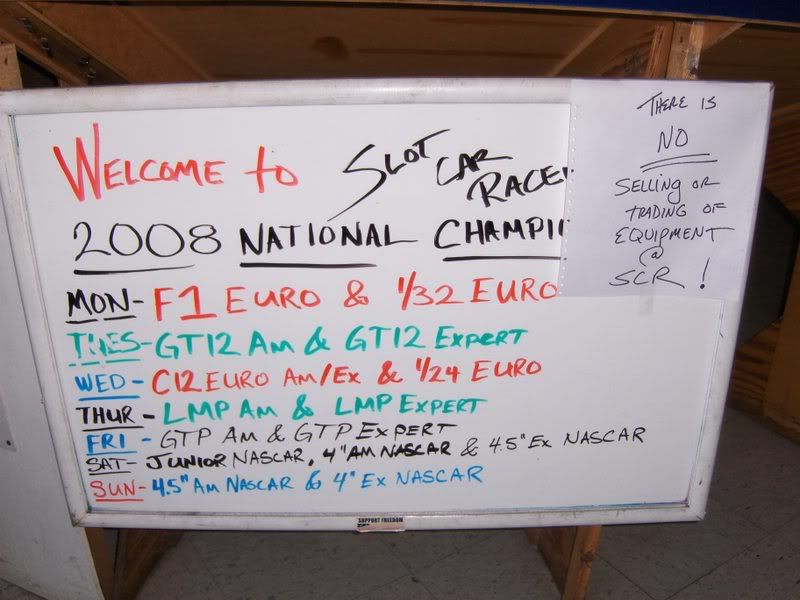 WELCOME to SLOT CAR RACE
2008 NATIONAL CHAMPI
MON- F1 EURO & 1/32 EURO
TUES- GT12 Am & GT12 Expert
WED - C12 EURO Am/Ex & 1/24 EURO
THUR - LMP Am & LMP Expert
FRI - GTP Am & GTP Expert
SAT- JUNIOR NASCAR, 4" AM NASCAR & 4.5" Ex NASCAR
SUN- 4.5" Am NASCAR & 4" Ex NASCAR
THERE IS
NO
SELLING OR
TRADING OF
EQUIPMENT
@
SCR !
SUPPORT FREEDOM